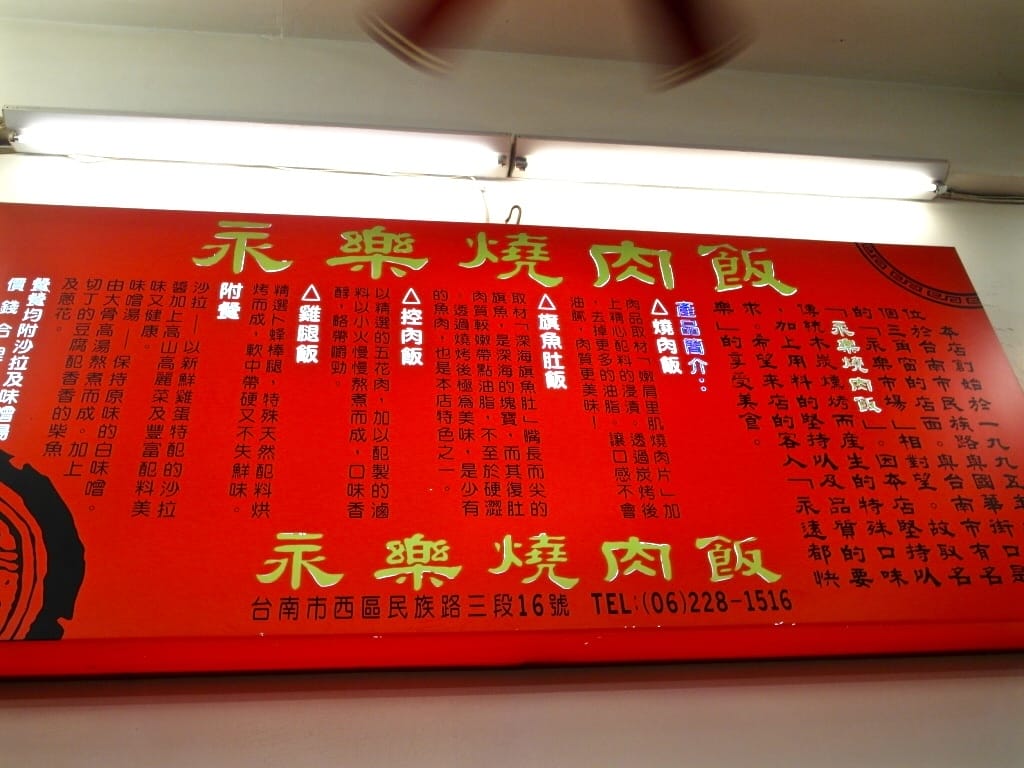 永樂燒肉飯
本店創始於一九九五年
位於台南市民族路與國華街口是
個三角窗的店面。與台南市有名
的「永樂市場」相對望,故取名
「永樂燒肉飯」。因本店堅持以
傳統木炭燻烤而產生的特殊口味
,加上用料的堅持以及品質的要
求。希望來店的客人「永遠都快
樂」的享受美食。
產品簡介:
△燒肉飯
肉品取材「嫩肩里肌燒肉片」加
上精心配料的浸漬。透過炭烤後
,去掉更多的油脂。讓口感不會
油膩,肉質更美味!
△旗魚肚飯
取材「深海旗魚肚」嘴長而尖的
旗魚,是深海的塊寶,而其復肚
肉質較嫩帶點油脂,不至於硬澀
,透過燒烤後極為美味,是少有
的魚肉,也是本店特色之一。
△控肉飯
以精選的五花肉,加以配製的滷
料以小火慢熬煮而成,口味香
醇,略帶嚼勁。
△雞腿飯
精選卜蜂棒腿,特殊天然配料烘
烤而成,軟中帶硬又不失鮮味。
附餐
沙拉—以新鮮雞蛋特配的沙拉
醬加上高山高麗菜及豐富配料美
味又健康。
味噌湯—保持原味的白味噌。
由大骨高湯熬煮而成。加上
切丁的豆腐配香香的柴魚
及蔥花。
餐餐均附沙拉及味噌湯
價錢合
永樂燒肉飯
台南市西區民族路三段16號 TEL:(06)228-1516